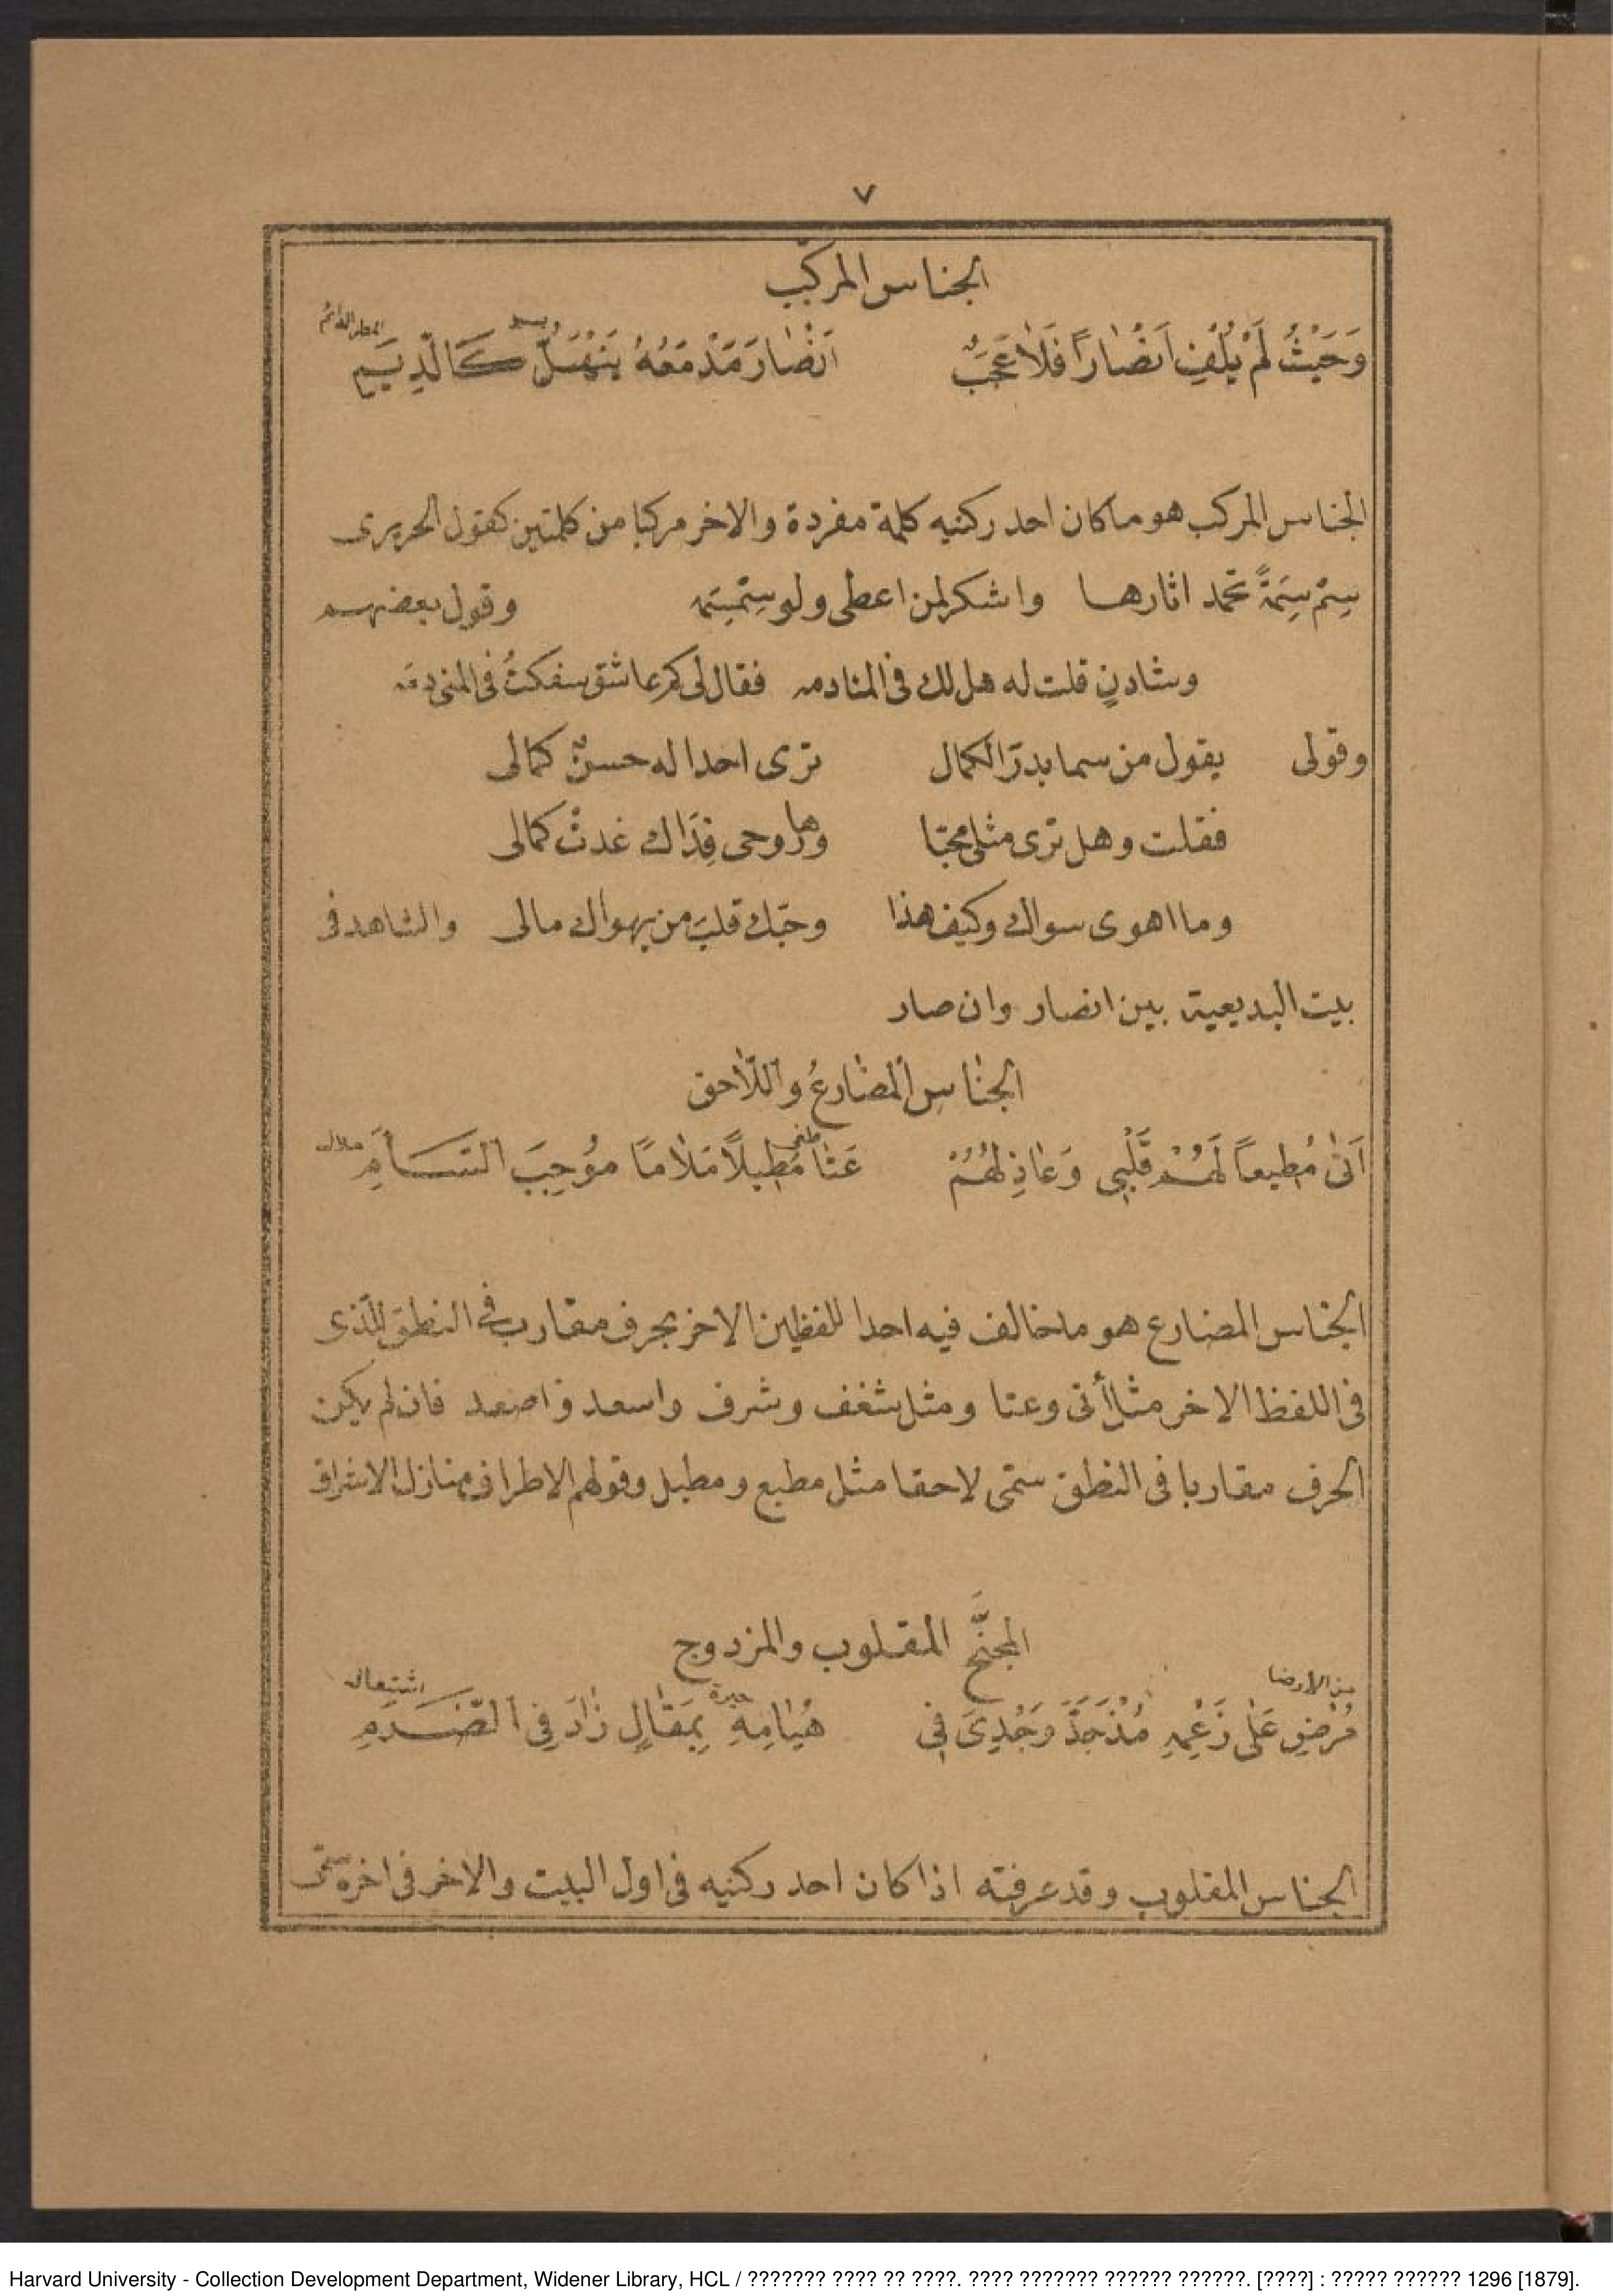 ٧
الجناس المركب
وَحَيْثُ لَمْ يُلْفِ اَنْصَاراً فَلَا عَجَبٌ اَنْ صَارَ مَدْمَعُهُ يَنْهَلُّ كَالدِّيَمِ
الجناس المركب هو ما كان احد ركنيه كلمة مفردة والاخر مركبا من كلمتين كقول الحريرى
سِمْ سِمَةً تحمد اثارها واشكر لمن اعطى ولو سِمْسِمَه وقول بعضهم
وشادنٍ قلت له هل لك فى المنادمه فقال لى كم عاشق سفكتُ فى المنى دمَه
وقولى يقول من سما بدرَ الكمال ترى احدا له حسنٌ كمالى
فقلت وهل ترى مثلى محبّا وها روحى فِدَاك غدتْ كمالى
وما اهوى سواك وكيف هذا وحبّك قلبَ من يهواك مالى والشاهد فى
بيت البديعية بين انصار وان صار
الجناس المضارعُ واللّاحق
اَتٰى مُطيعاً لَهُمْ قَلْبِى وَعَاذِلُهُمْ عَتٰا مُطِيلاً مَلَامًا مُوْجِبَ السَأَمِ
الجناس المضارع هو ما خالف فيه احد اللفظين الاخر بحرف مقارب فى النطق للّذى
فى اللفظ الاخر مثل أتى وعتا ومثل شغف وشرف واسعد واصعد فان لم يكن
الحرف مقاربا فى النطق سمّى لاحقا مثل مطيع ومطيل وقولهم الاطراف منازل الاشراف
المجنَّح المقلوب والمزدوج
من الارضا حيرة اشتعال
مُرْضٍ عَلٰى زَعْمِهِ مُذْ جَدَّ وَجْدِىَ فِى هُيٰامِهِ بِمَقٰالٍ زٰادَ فِى الضَّرَمِ
الجناس المقلوب وقد عرفته اذا كان احد ركنيه فى اول البيت والاخر فى اخره سمّى
Harvard University - Collection Development Department, Widener Library, HCL / ??????? ???? ?? ????. ???? ??????? ?????? ??????. [????] : ????? ?????? 1296 [1879].